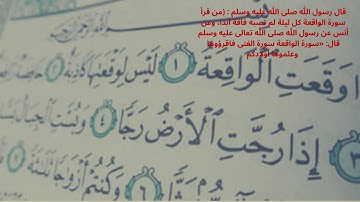 قال رسول الله صلى الله عليه وسلم : (من قرأ
سورة الواقعة كل ليلة لم تصبه فاقة أبدا، وعن
أنس عن رسول الله صلى الله تعالى عليه وسلم
قال: «سورة الواقعة سورة الغنى فاقرؤوها
وعلموها أولادكم
وَقَعَتِ ٱلۡوَاقِعَةُ ١ لَيۡسَ لِوَقۡعَتِهَا كَاذِبَةٌ ٢
إِذَا رُجَّتِ ٱلۡأَرۡضُ رَجّٗا ٤ وَبُسَّتِ ٱلۡجِبَالُ
وَكُنتُمۡ أَزۡوَٰجٗا ثَلَٰثَةٗ